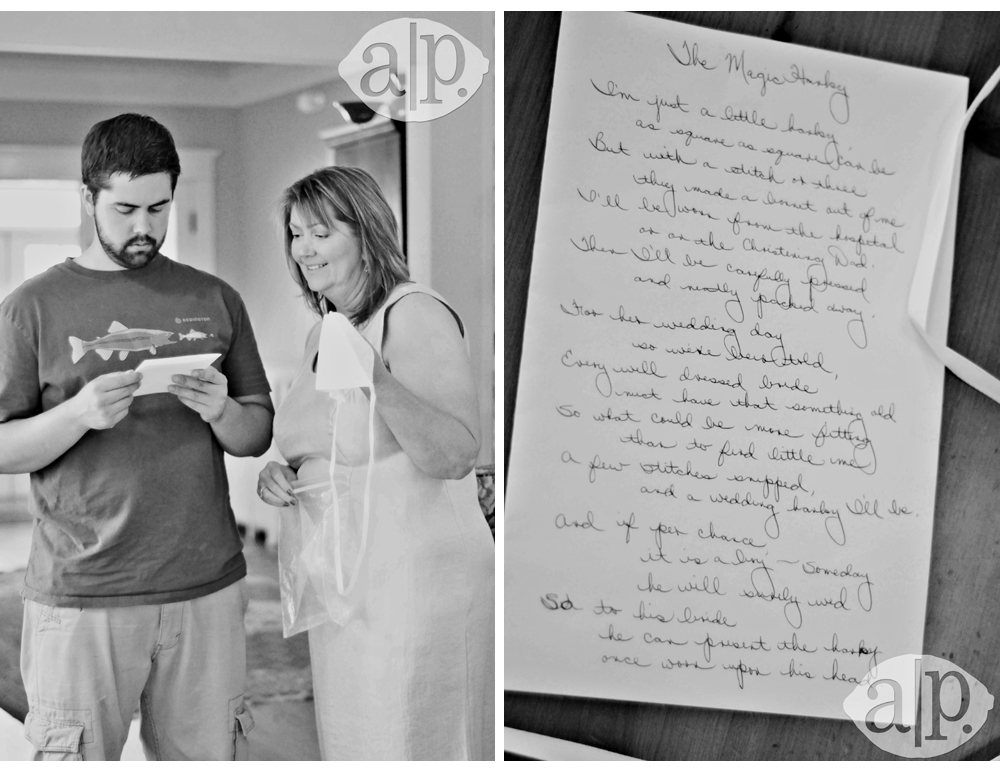 a|p.
The Magic Hanky
I'm just a little hanky
as square as square can be
But with a stitch or three
they made a bonnet out of me
I'll be worn from the hospital
or on the Christening Day.
Then I'll be carefully pressed
and neatly packed away.
For her wedding day
so we've been told,
Every well dressed bride
must have that something old
So what could be more fitting
than to find little me
A few stitches snipped,
and a wedding hanky I'll be.
And if per chance
it is a boy - Someday
he will surely wed
So to his bride
he can present the hanky
once worn upon his head
a|p.